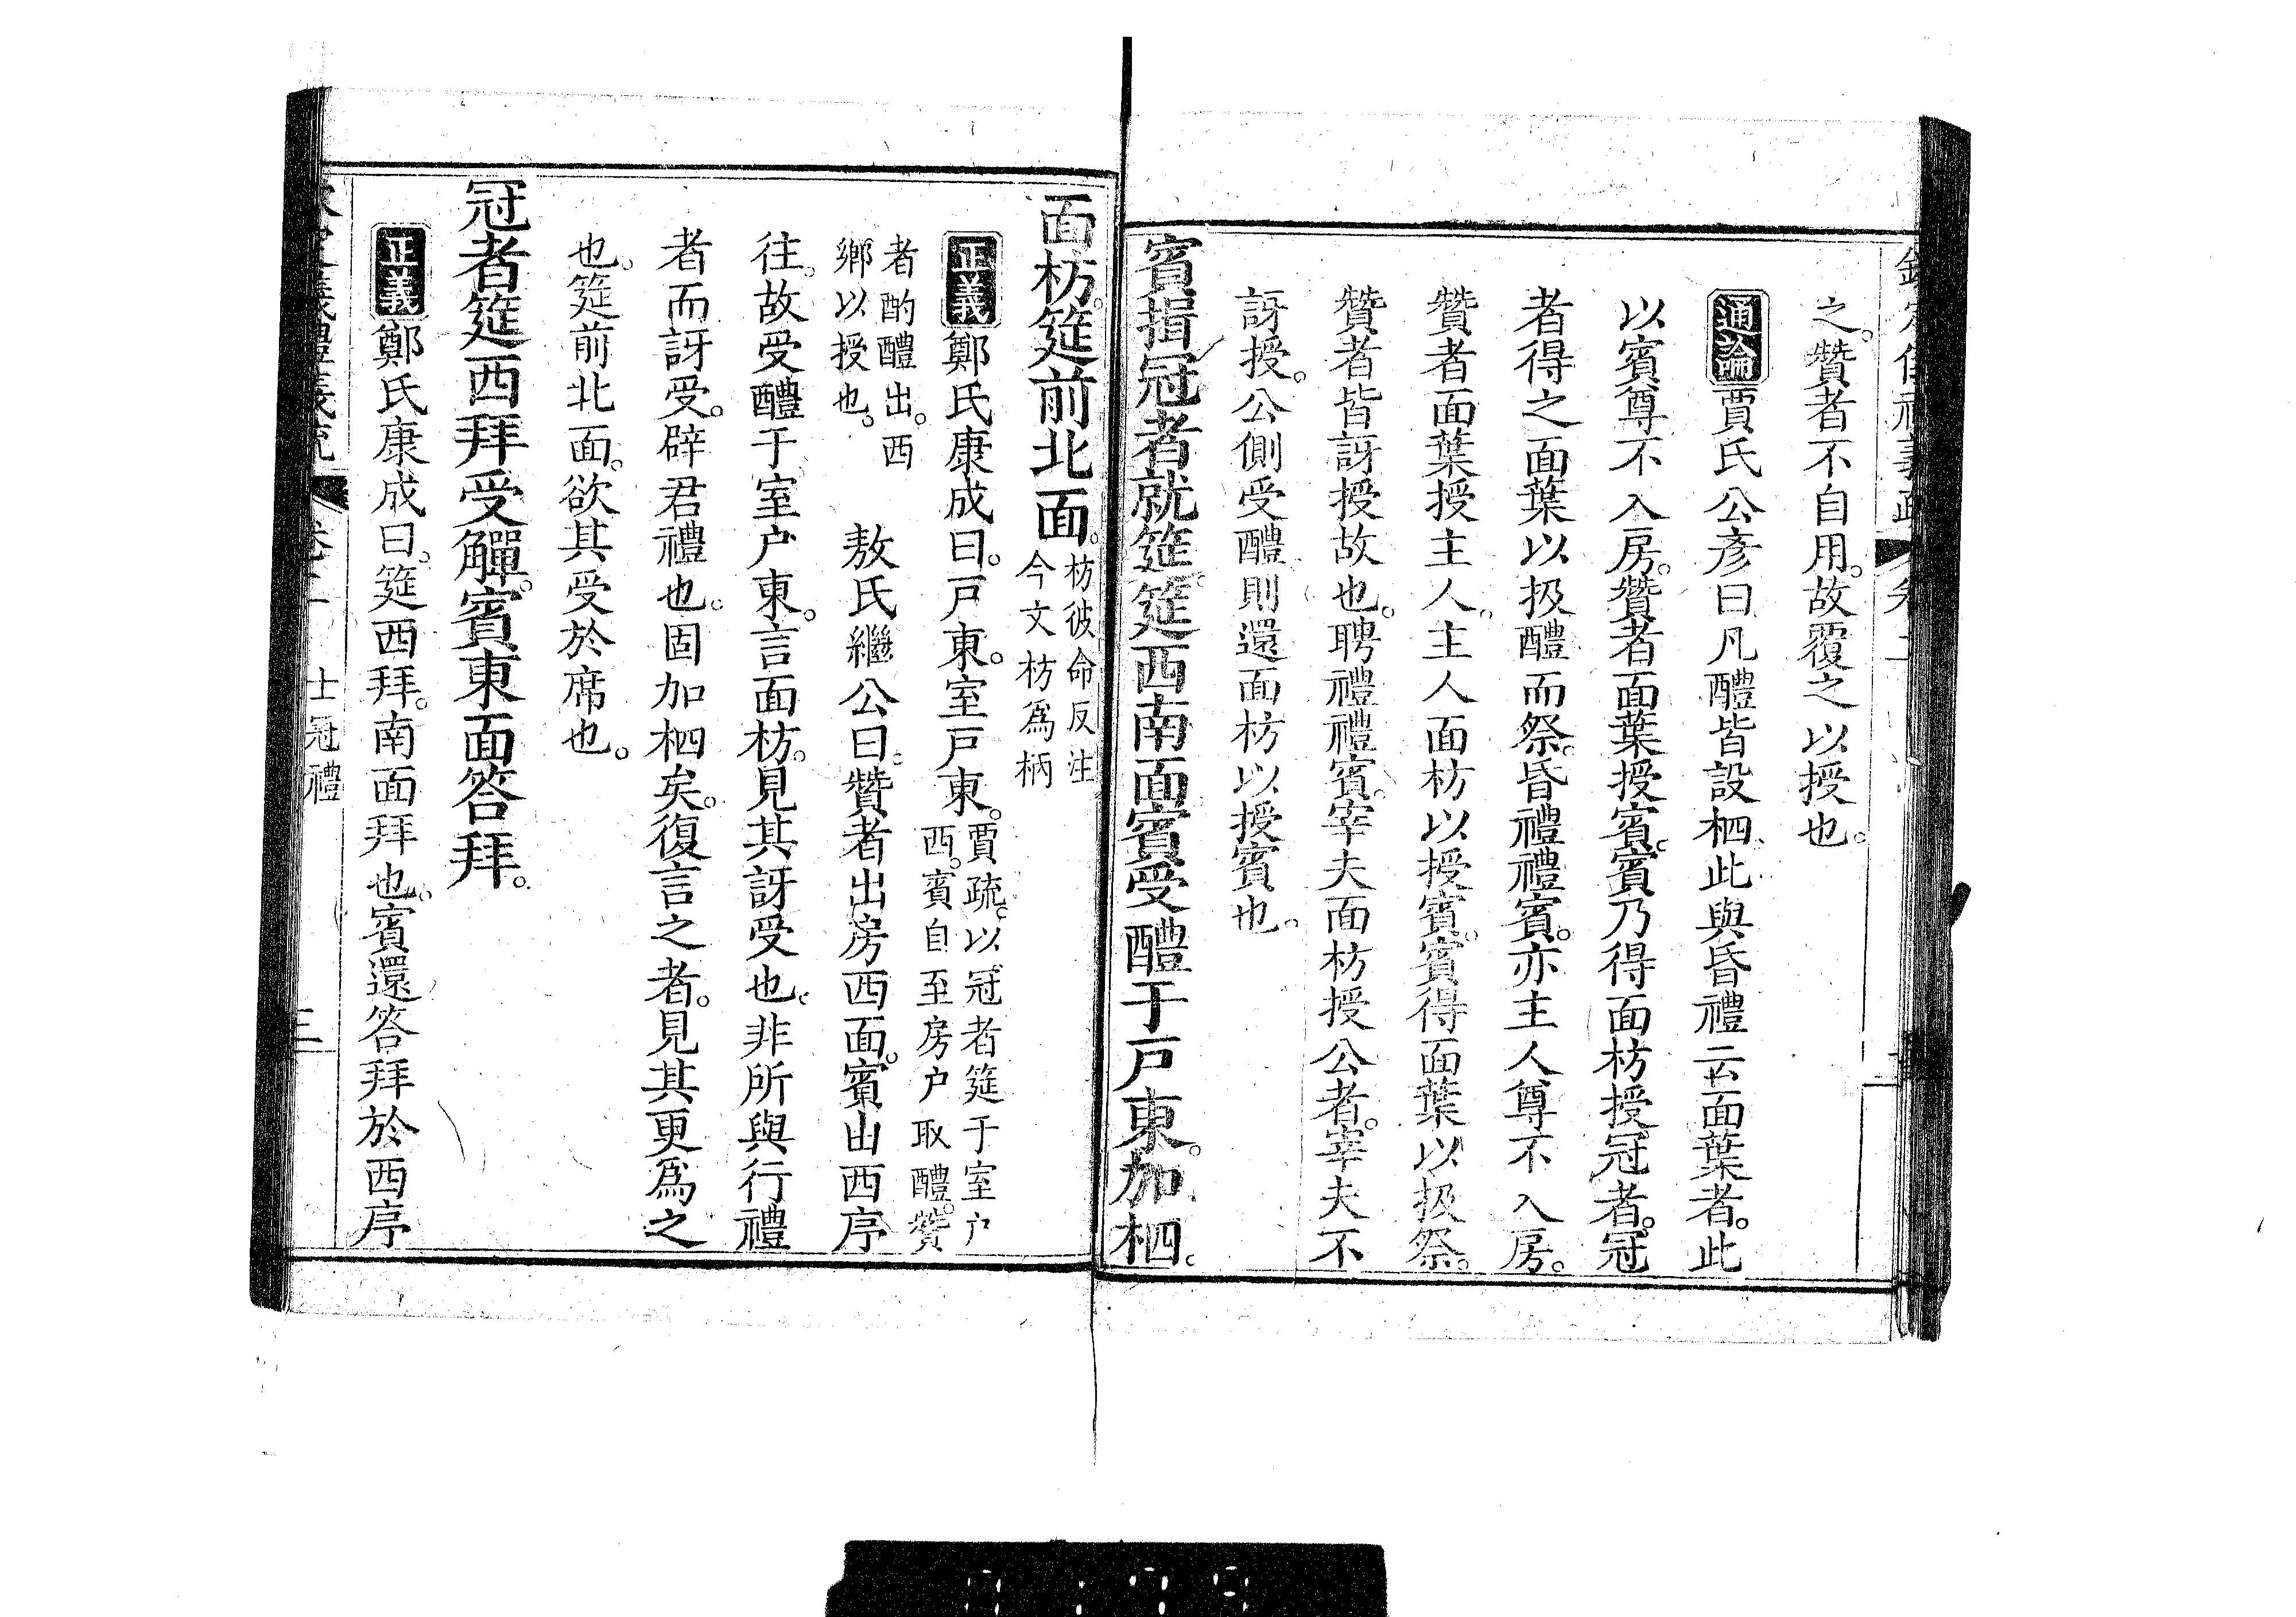 之。贊者不自用。故覆之以授也。
通論賈氏公彥曰凡醴皆設柶此與昏禮云面葉者。此
以賓尊不入房。贊者面葉授賓。賓乃得面枋授冠者。冠
者得之面葉以扱醴而祭。昏禮禮賓。亦主人尊不入房。
贊者面葉授主人。主人面枋以授賓。賓得面葉以扱祭。
贊者皆訝授故也。聘禮禮賓。宰夫面枋授公者。宰夫不
訝授。公側受醴則還面枋以授賓也。
賓揖冠者就筵筵西南面賓受醴于戶東。加柶。
面枋。筵前北面。枋彼命反注
今文枋爲柄
正義鄭氏康成曰。戶東。室戶東。賈疏。以冠者筵于室戶
西。賓自至房户取醴。贊
者酌醴出。西
鄉以授也。
敖氏繼公曰。贊者出房西面。賓出西序
往。故受醴于室户東。言面枋。見其訝受也。非所與行禮
者而訝受。辟君禮也。固加柶矣。復言之者。見其更爲之
也。筵前北面。欲其受於席也。
冠者筵西拜受觶。賓東面答拜。
正義鄭氏康成曰。筵西拜。南面拜也。賓還答拜於西序
士冠禮